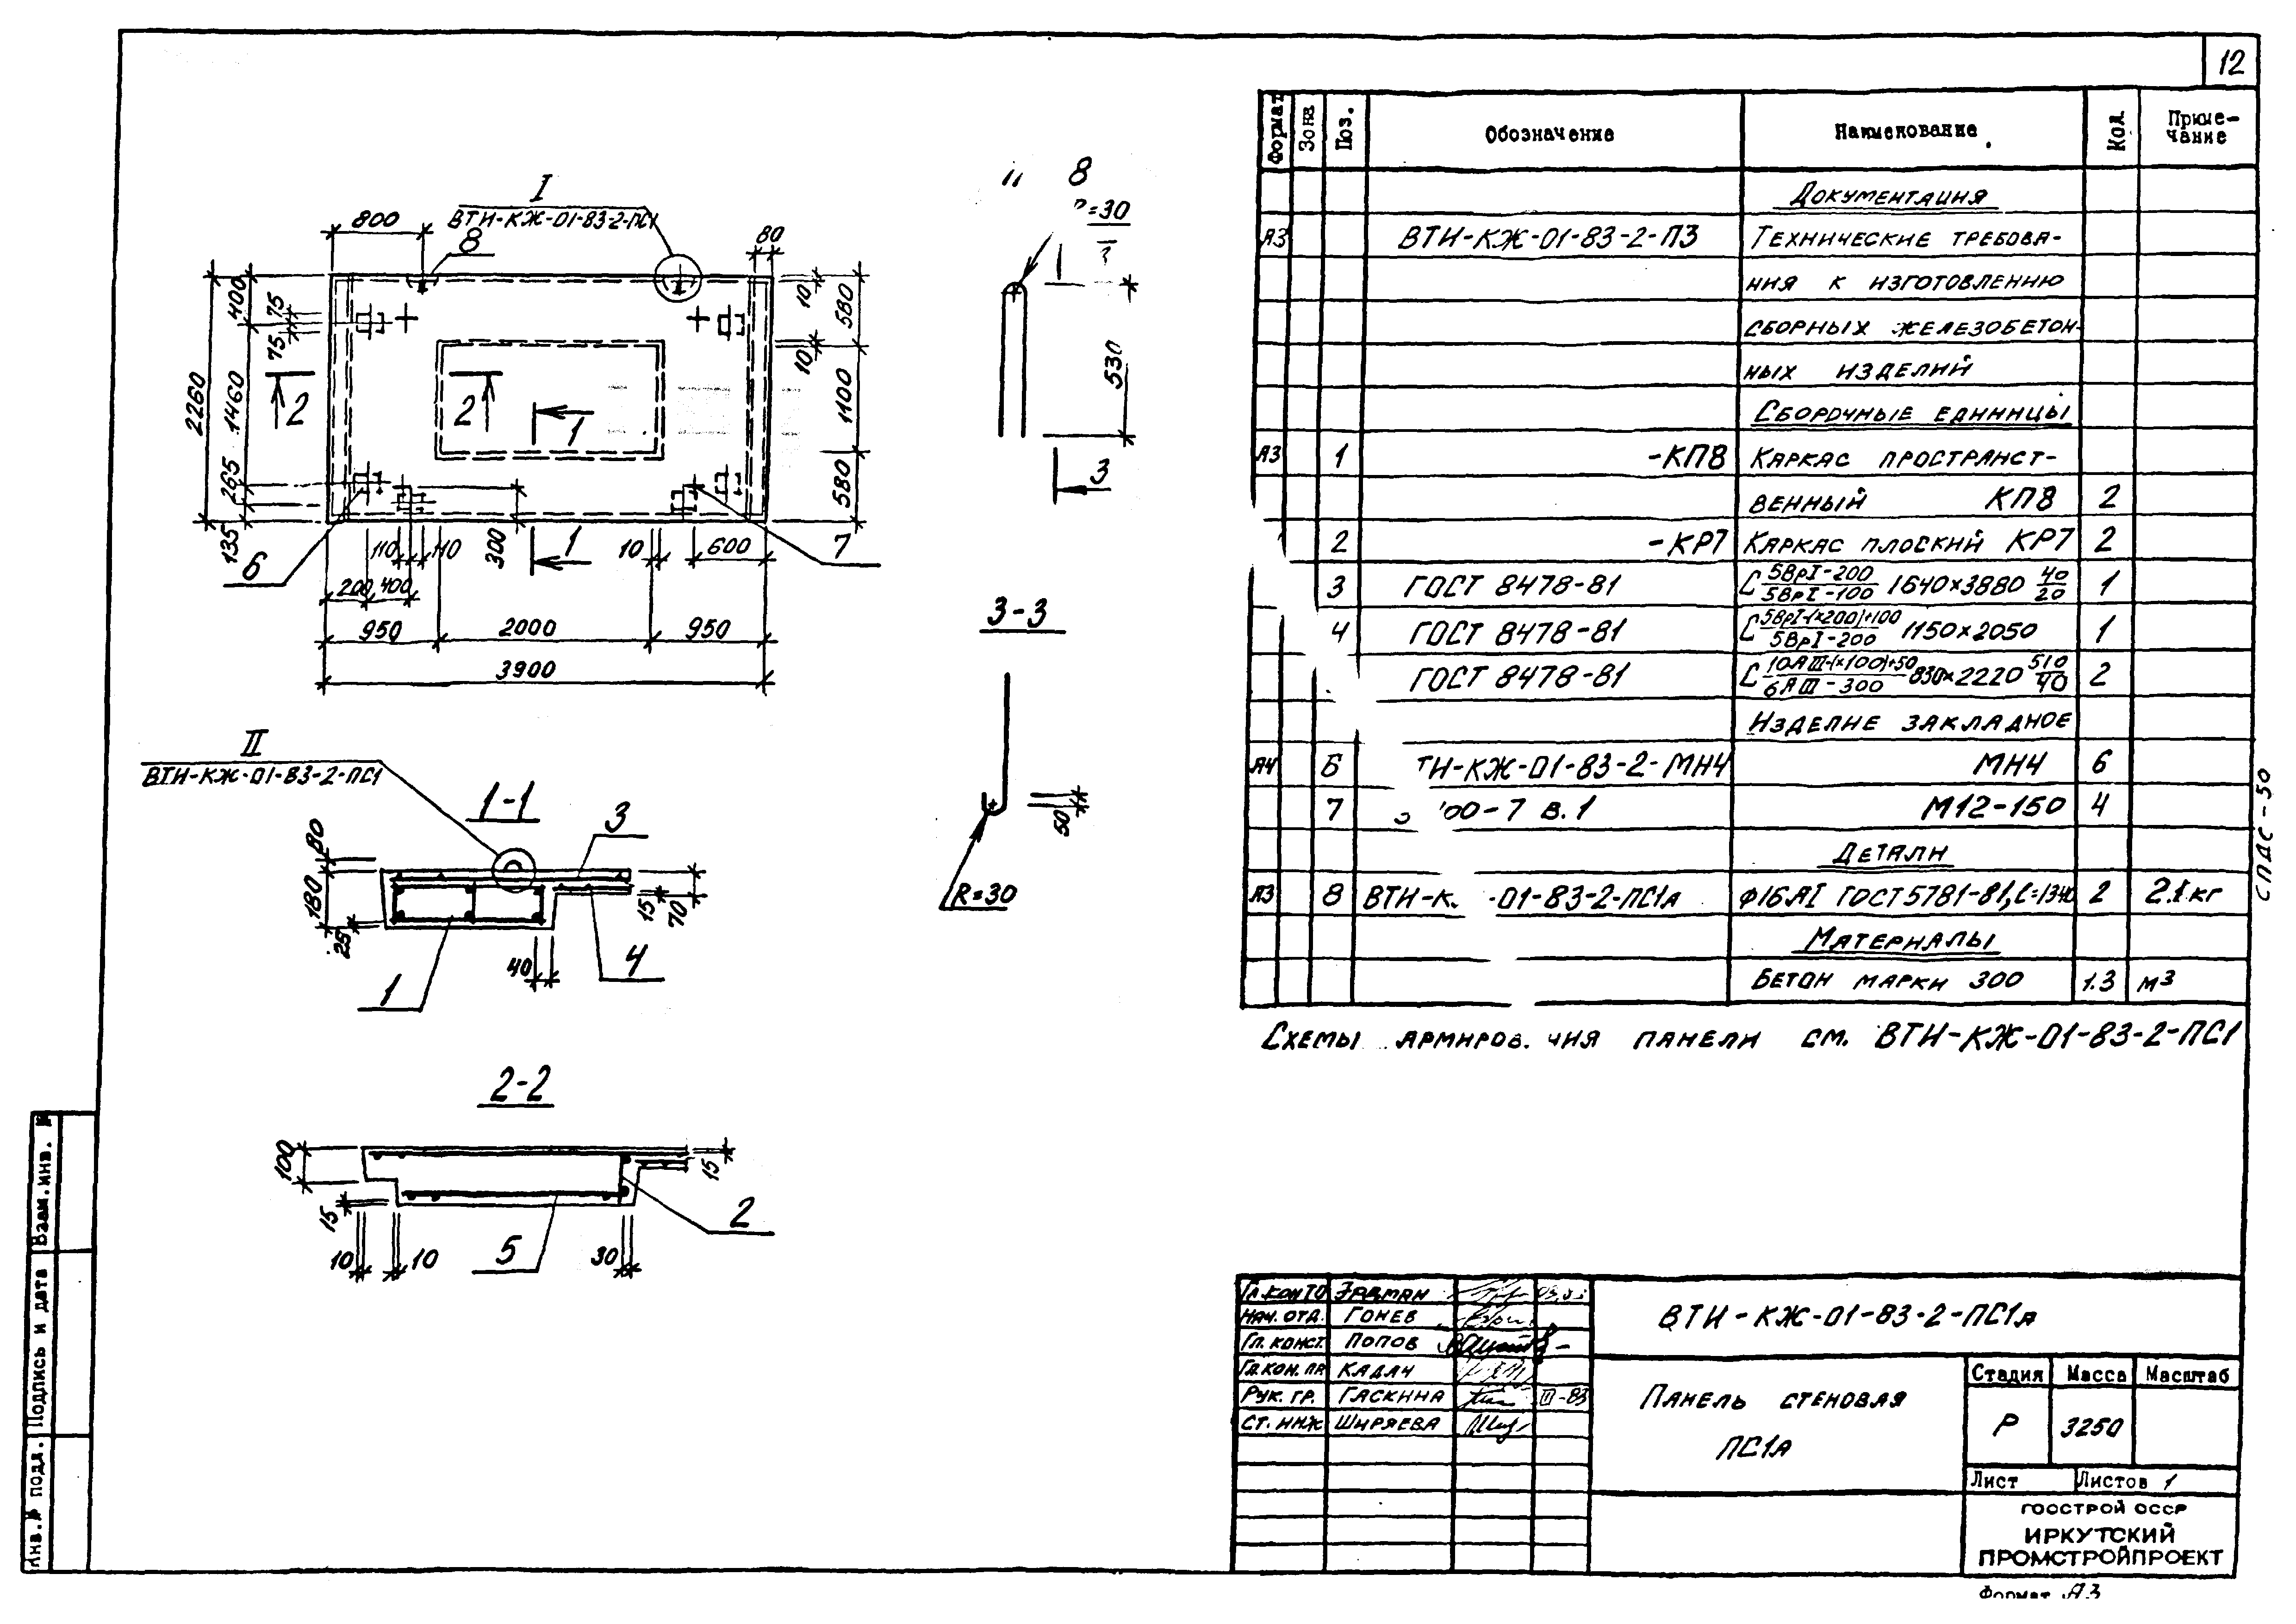 12
I
ВТИ-КЖ-01-83-2-ПС1
800
8
80
400
75
75
2260
1460
265
135
2
2
1
1
10
10
580
1100
580
6
7
110
110
300
10
600
200
400
950
2000
950
3900
8
=30
530
3
3-3
50
R=30
II
ВТИ-КЖ-01-83-2-ПС1
1-1
3
80
180
25
15
70
40
4
1
2-2
100
15
15
10
10
30
5
2
Формат
Зона
Поз.
Обозначение
Наименование
Кол.
Приме-
чание
Документация
А3 ВТИ-КЖ-01-83-2-ПЗ Технические требова-
ния к изготовлению
сборных железобетон-
ных изделий
Сборочные единицы
А3 1 -КП8 Каркас пространст-
венный КП8 2
2 -КР7 Каркас плоский КР7 2
3 ГОСТ 8478-81 С 5ВрI-200/5ВрI-100 1640×3880 40/20 1
4 ГОСТ 8478-81 С 5ВрI-(×200)+100/5ВрI-200 1150×2050 1
ГОСТ 8478-81 С 10АIII-(×100)+50/6АIII-300 830×2220 510/40 2
Изделие закладное
А4 6 ТИ-КЖ-01-83-2-МН4 МН4 6
7 00-7 В.1 М12-150 4
Детали
А3 8 ВТИ-К -01-83-2-ПС1а ф16АI ГОСТ 5781-81, С=1340 2 2.1 кг
Материалы
Бетон марки 300 1.3 м³
Схемы армиров. ния панели см. ВТИ-КЖ-01-83-2-ПС1
СПДС-50
Взам.инв. №
Подпись и дата
Инв.№ подл.
Гл.конто Эрдман
Нач. отд. Гонев
Гл. конст. Попов
Гл.кон. пр Кадач
Рук. гр. Гаскина III-83
Ст. инж Ширяева
ВТИ-КЖ-01-83-2-ПС1а
Панель стеновая
ПС1а
Стадия Масса Масштаб
Р 3250
Лист Листов 1
ГОССТРОЙ СССР
ИРКУТСКИЙ
ПРОМСТРОЙПРОЕКТ
Формат А3